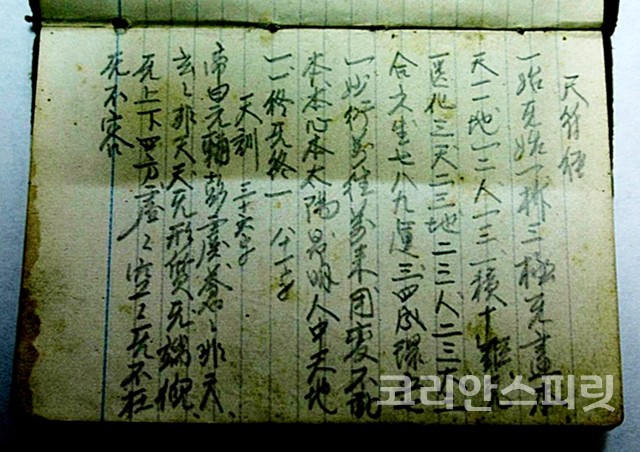 天符經
一始无始一析三極无盡本
天一一地一二人一三一積十鉅无
匱化三天二三地二三人二三大三
合六生七八九運三四成環五
一妙衍萬往萬來用變不動
本本心本太陽昻明人中天地
一一終无終一 八十一字
天訓 三十六字
帝曰元輔彭虞蒼〻非天
玄〻非天天无形質无端倪
无上下四方虛〻空〻无不在
无不容
코리안스피릿